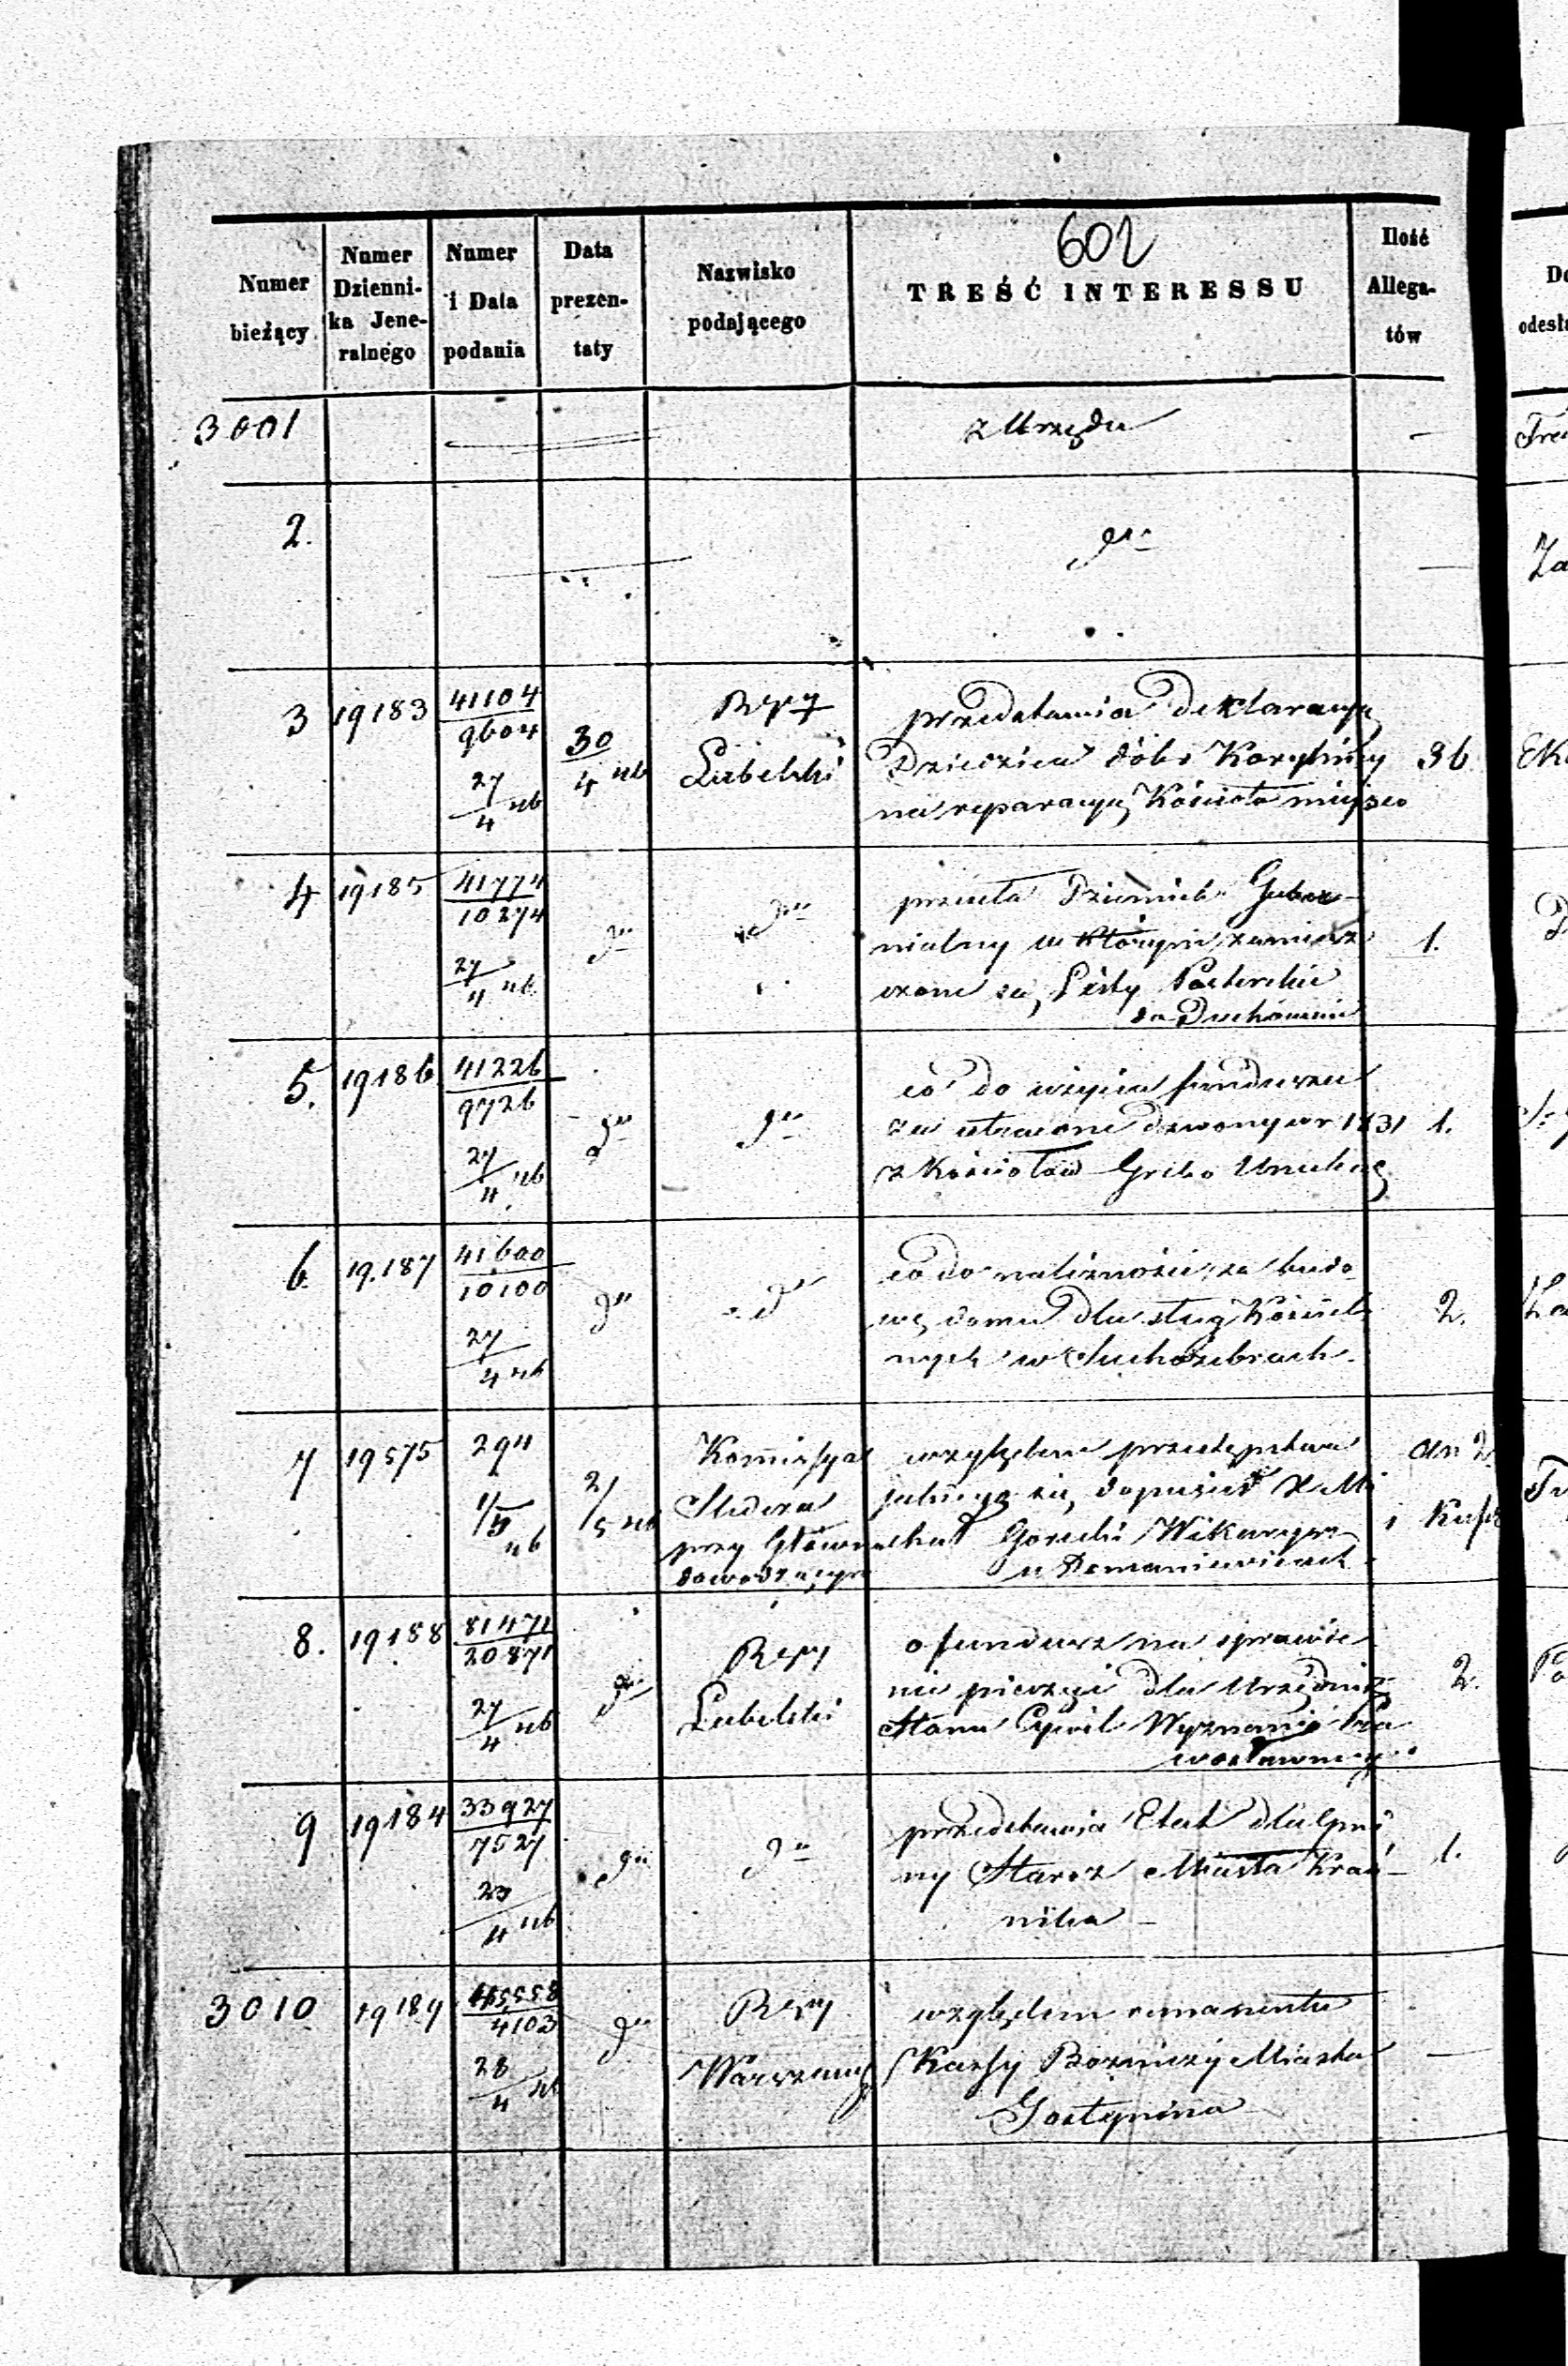 602
Numer bieżący | Numer Dzienni- ka Jene- ralnego | Numer i Data podania | Data prezen- taty | Nazwisko podającego | TREŚĆ INTERESSU | Ilość Allega- tów
3001 | z Urzędu | —
2. | dto | —
3 | 19183 | 41104 / 9604 | 27/4 46 | 30/4 46 | Lubelski | 36
przedstawia Deklaracyę
Dziedzica dóbr
na reparacyę Kościoła miejsco
4 | 19185 | 41774 / 10274 | 27/4 46 | dto | dto | 1.
przesyła Dziennik Guber-
nialny w którym zamiesz
czone są Listy Pasterskie
do Duchowień
5. | 19186 | 41226 / 9726 | 27/4 46 | dto | dto | 1.
co do użycia funduszu
za utracone dzwony w r 1831
z Kościołów Greko Unickich
6 | 19.187 | 41600 / 10100 | 27/4 46 | dto | dto | 2.
co do należności za budo
wę domu dla sług Kościel
nych w Suchożebrach
7 | 19575 | 294 | 1/5 46 | 2/5 46
Komissya
Śledcza
przy Główno
dowodzącym
względem przestępstwa
jakiego się dopuścił X Mi
chał Gorecki Wikaryusz
w Domaniewicach
8. | 19188 | 81471 / 20871 | 27/4 46 | dto | Lubelski | 2.
o fundusz na sprawie
nie pieczęci dla Urzędnik
Stanu Cywil Wyznania Pra
wosławnego
9 | 19184 | 33927 / 7527 | 4 46 | dto | dto | 1.
przedstawia Etat dla Gmi
ny Staroz Miasta Kraś-
nika —
3010 | 19189 | 4103 | 28/4 46 | dto | —
względem remanentu
Kassy Bożniczy Miasta
Gostynina